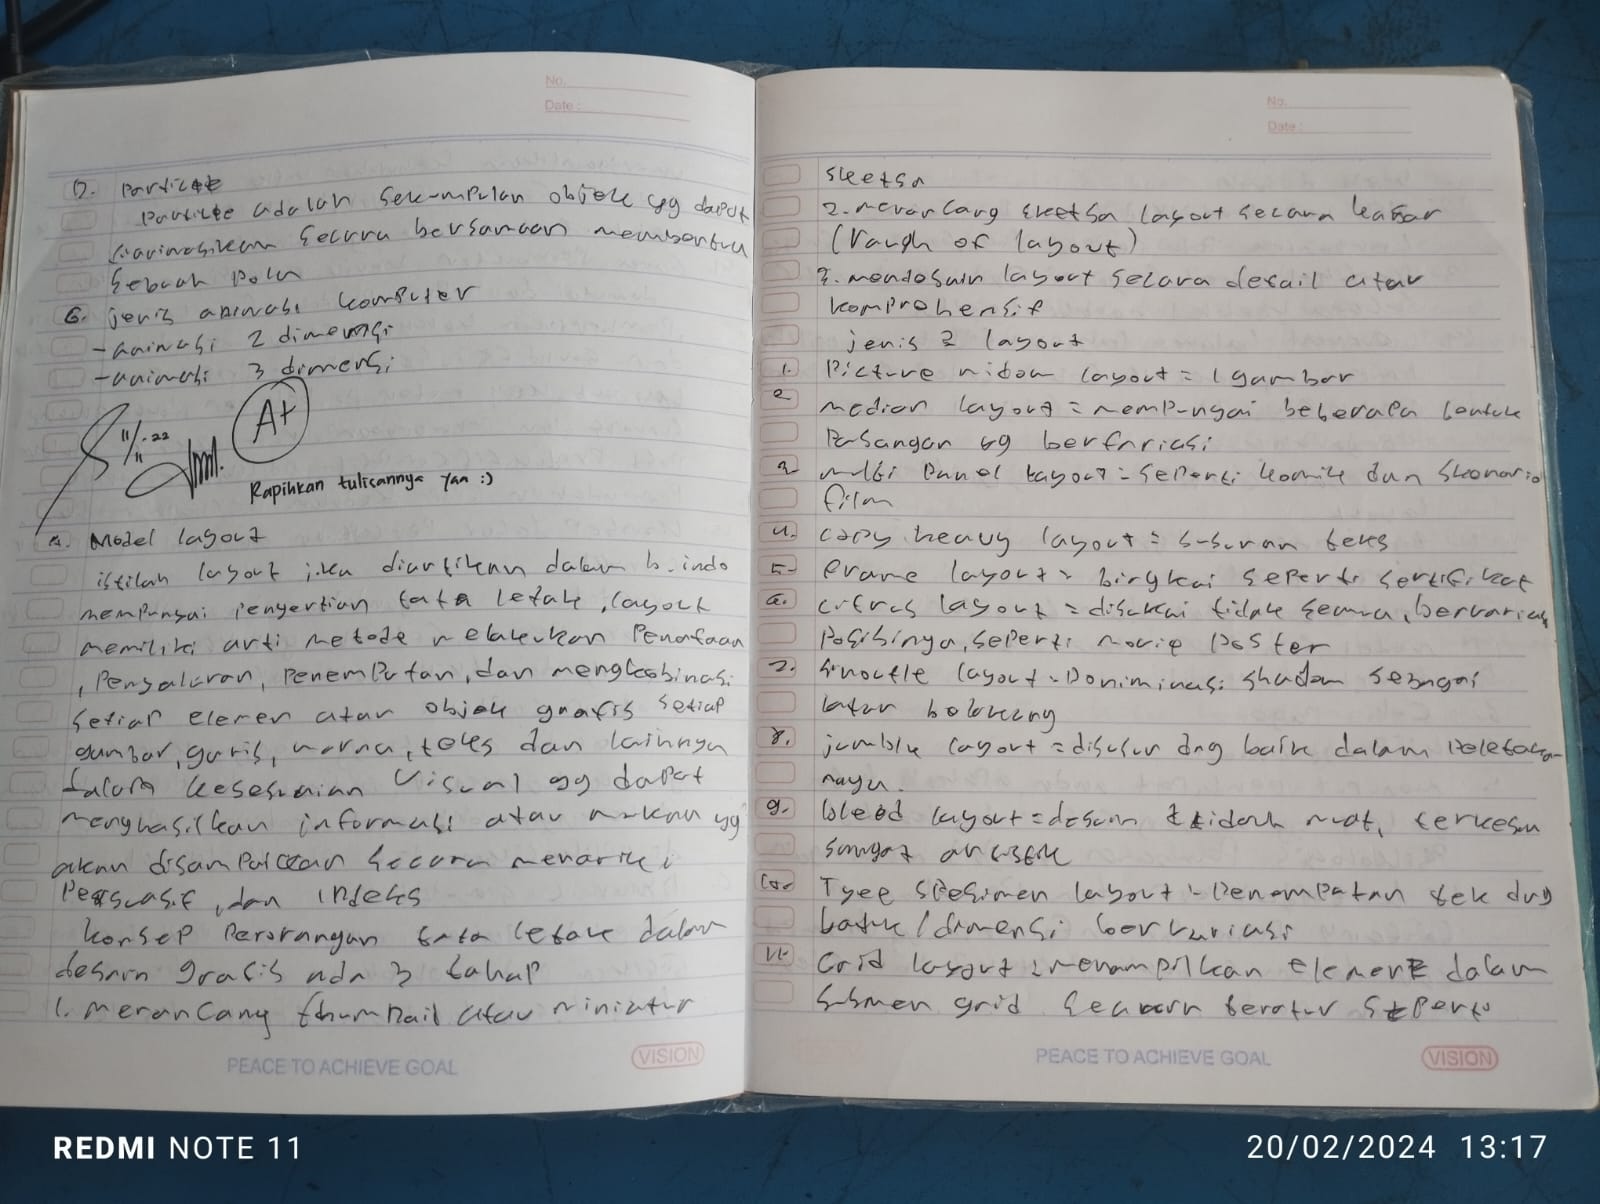 No.
Date :
D. Particle
Particle adalah sekumpulan objek yg dapat
dianimasikan secara bersamaan membentu
sebuah pola
6. jenis animasi komputer
- animasi 2 dimensi
- animasi 3 dimensi
A+
11/11-22
Rapihkan tulisannya Yaa :)
A. Model layout
istilah layout jika diartikan dalam b. indo
mempunyai pengertian tata letak, layout
memiliki arti metode melakukan Penataan
, Pengaturan, Penempatan, dan mengkobinasi
setiap elemen atau objek grafis setiap
gambar, garis, warna, teks dan lainnya
dalam kesesuaian visual yg dapat
menghasilkan informasi atau makna yg
akan disampaikan secara menarik,
Persuasif, dan indeks
konsep Perancangan tata letak dalam
desain grafis ada 3 tahap
1. merancang thumbnail atau miniatur
PEACE TO ACHIEVE GOAL
VISION
No.
Date :
sketsa
2. merancang sketsa layout secara kasar
(rough of layout)
3. mendesain layout secara detail atau
komprehensif
jenis 2 layout
1. Picture window layout = 1 gambar
2 median layout = mempunyai beberapa bentuk
Pasangan yg berfariasi
3 multi Panel layout = seperti komik dan skenario
film
4. copy heavy layout = susunan teks
5. frame layout = bingkai seperti sertifikat
6. circus layout = disukai tidak semua, bervariasi
Posisinya, seperti movie poster
7. silhouette layout = Dominasi shadow sebagai
latar belakang
8. jumble layout = disusun dng baik dalam Peletakan
naya.
9. bleed layout = desain tidak muat, terkesan
sangat artistik
10. Type spesimen layout = Penempatan tek dng
batuk / dimensi bervariasi
11. Grid layout = menampilkan element dalam
susunan grid secara teratur seperti
PEACE TO ACHIEVE GOAL
VISION
REDMI NOTE 11
20/02/2024 13:17